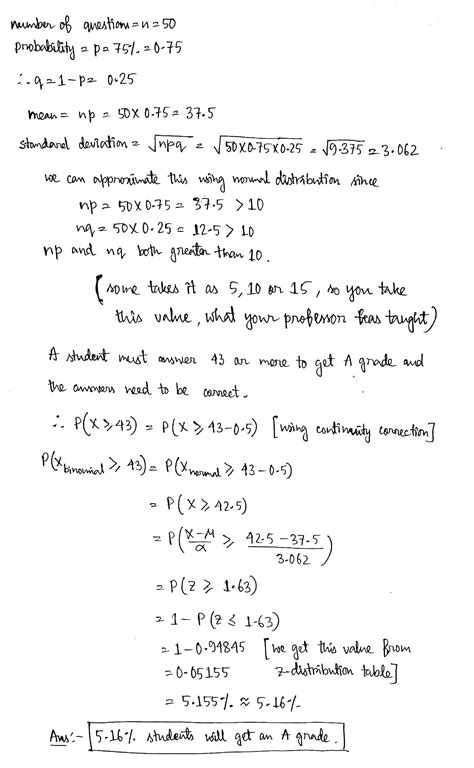 number of questions = n = 50
probability = p = 75% = 0.75
∴ q = 1-p = 0.25
mean = np = 50 X 0.75 = 37.5
standard deviation = √npq = √50X0.75X0.25 = √9.375 = 3.062
we can approximate this using normal distribution since
np = 50 X 0.75 = 37.5 > 10
nq = 50 X 0.25 = 12.5 > 10
np and nq both greater than 10.
(some takes it as 5, 10 or 15, so you take
this value, what your professor has taught)
A student must answer 43 or more to get A grade and
the answers need to be correct.
∴ P(X ≥ 43) = P(X ≥ 43-0.5) [using continuity correction]
P(X binomial ≥ 43) = P(X normal ≥ 43-0.5)
= P(X ≥ 42.5)
= P(X-μ/α ≥ 42.5-37.5/3.062)
= P(Z ≥ 1.63)
= 1 - P(Z ≤ 1.63)
= 1 - 0.94845 [we get this value from
= 0.05155 z-distribution table]
= 5.155% ≈ 5.16%
Ans:- 5.16% students will get an A grade.